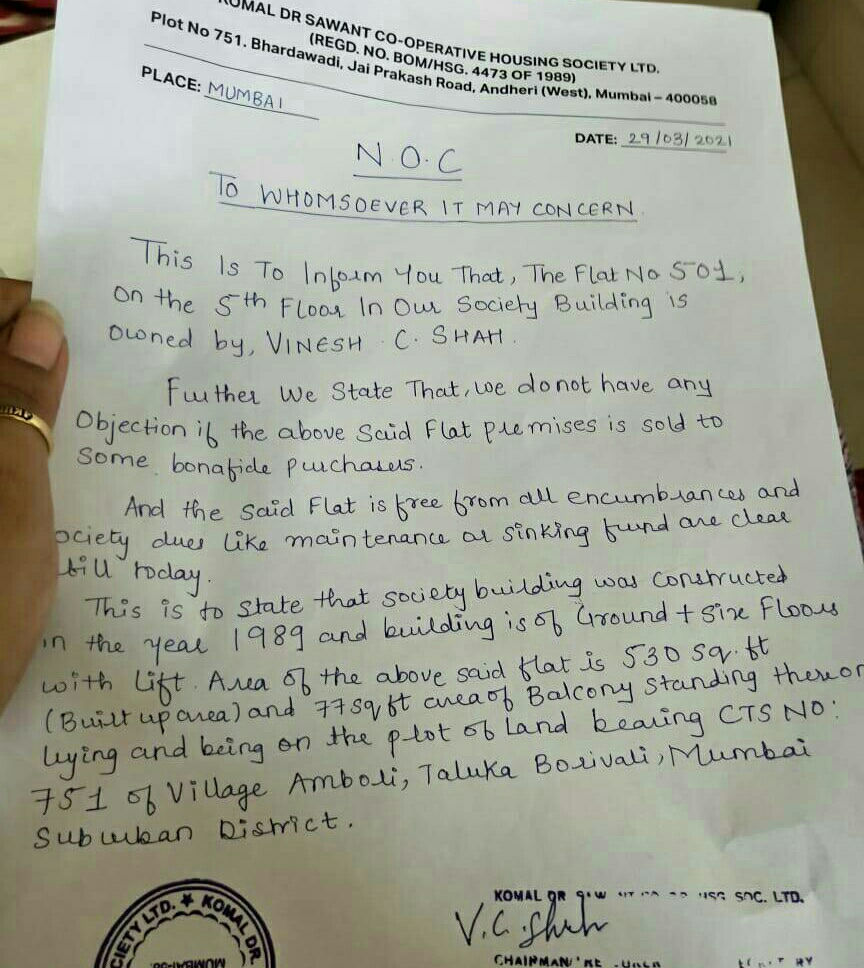 KOMAL DR SAWANT CO-OPERATIVE HOUSING SOCIETY LTD.
(REGD. NO. BOM/HSG. 4473 OF 1989)
Plot No 751. Bhardawadi, Jai Prakash Road, Andheri (West), Mumbai – 400058
PLACE: MUMBAI
DATE: 29/03/2021
N.O.C
To WHOMSOEVER IT MAY CONCERN.
This Is To Inform You That, The Flat No 501,
on the 5th Floor In Our Society Building is
owned by, VINESH C. SHAH.
Further We State That, we donot have any
Objection if the above Said Flat premises is sold to
Some bonafide purchasers.
And the Said Flat is free from all encumbrances and
ociety dues like maintenance or sinking fund are clear
till today.
This is to state that society building was constructed
in the year 1989 and building is of Ground + Six Floors
with Lift. Area of the above said flat is 530 sq.ft
(Built up area) and 77 sq ft area of Balcony standing thereon
lying and being on the plot of Land bearing CTS NO:
751 of Village Amboli, Taluka Borivali, Mumbai
Suburban District.
KOMAL DR SOC. LTD.
V.C. Shah
CHAIRMAN
CIETY LTD. ★ KOMAL DR.
MUMBAI